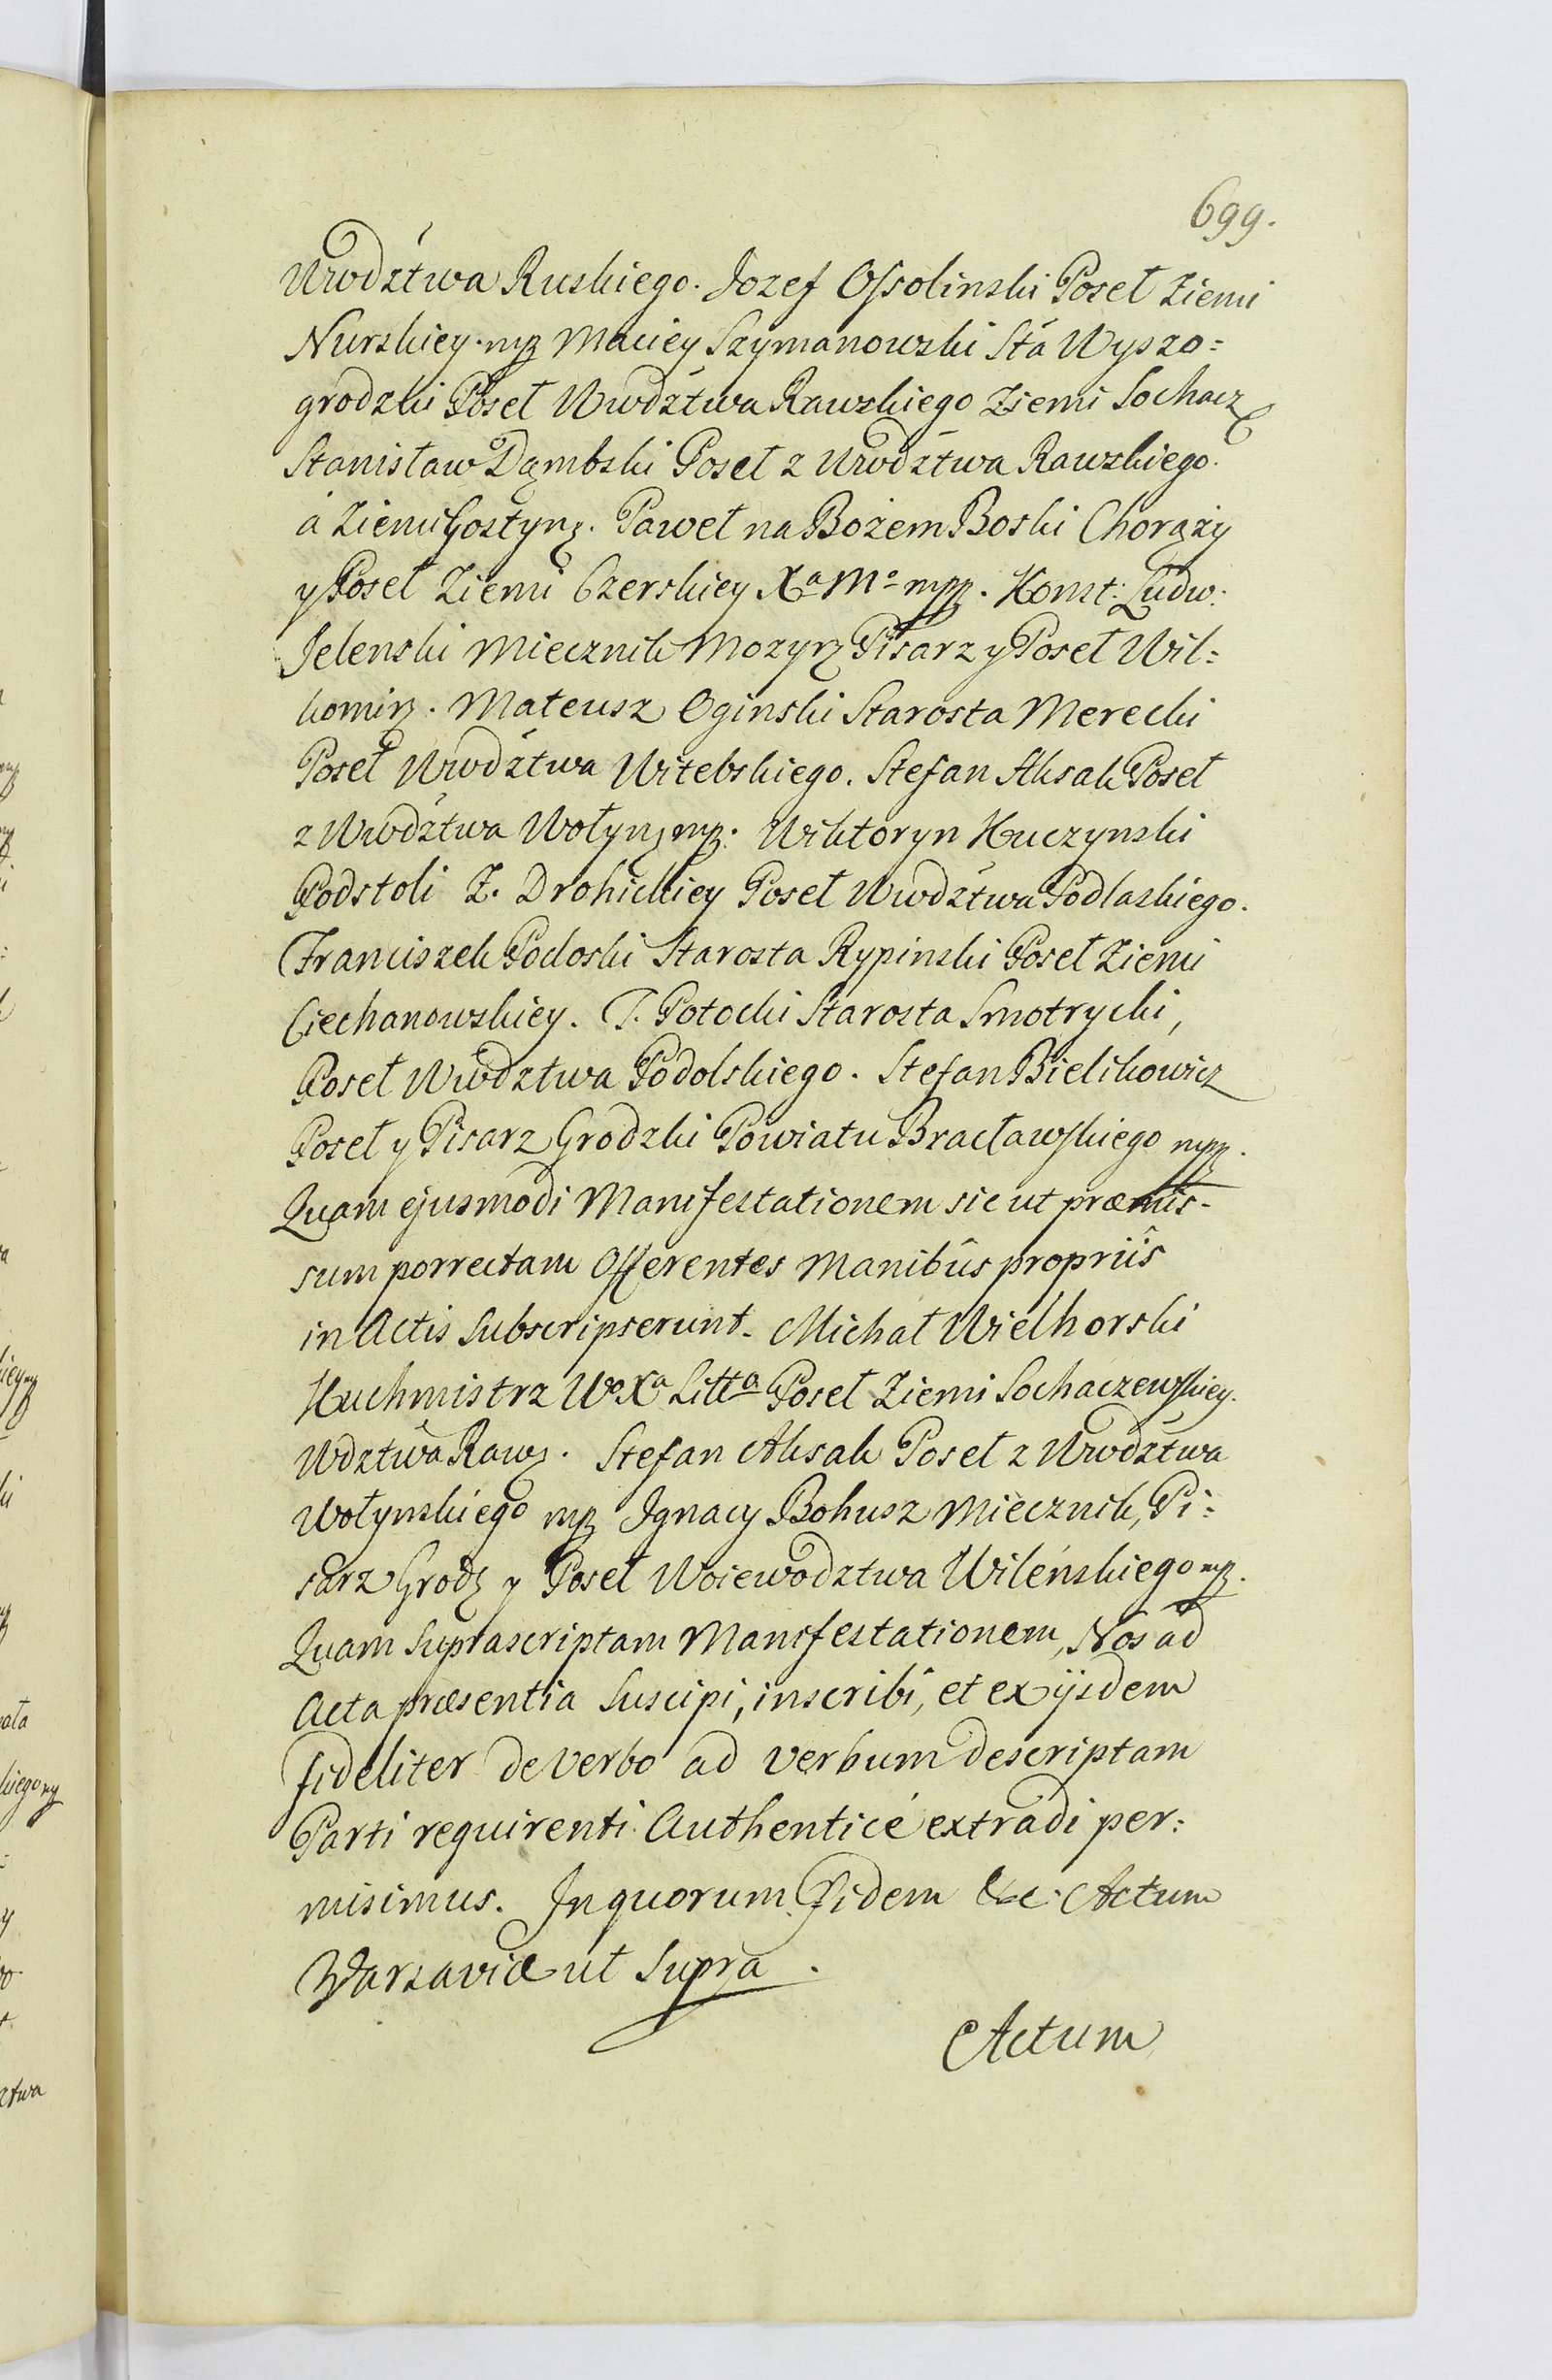 699.
Wwodztwa Ruskiego. Jozef Ossolinski Poseł Ziemi
Nurskiey. mp Maciey Szymanowski Stá Wyszo=
grodzki Poseł Wwodztwa Rawskiego Ziemi Sochacz
Stanisław Dąmbski Poseł z Wwodztwa Rawskiego.
á Ziemi Gostyn. Paweł na Bożem Boski Chorąży
y Poseł Ziemi Czerskiey Xa Mo mpp. Konst: Ludw:
Jelenski Miecznik Mozyr Pisarz y Poseł Wil=
komir. Mateusz Oginski Starosta Merecki
Poseł Wwodztwa Witebskiego. Stefan Aksak Poseł
z Wwodztwa Wołyn mp. Wiktoryn Kuczynski
Podstoli Z. Drohickiey Poseł Wwodztwa Podlaskiego.
Franciszek Podoski Starosta Rypinski Poseł Ziemi
Ciechanowskiey. T. Potocki Starosta Smotrycki,
Poseł Wwodztwa Podolskiego. Stefan Bielikowicz
Poseł y Pisarz Grodzki Powiatu Bracławskiego mpp.
Quam ejusmodi Manifestationem sic ut præmis-
sum porrectam Offerentes Manibûs propriîs
in Actis Subscripserunt. Michał Wielhorski
Kuchmistrz Wo Xa Litta Poseł Ziemi Sochaczewskiey.
Wdztwa Raw. Stefan Aksak Poseł z Wwodztwa
Wołynskiego mp Ignacy Bohusz Miecznik, Pi=
sarz Grodz y Poseł Woiewodztwa Wileńskiego mp.
Quam Suprascriptam Manifestationem, Nos ad
Acta præsentia Suscipi, inscribi, et ex ijsdem
fideliter de Verbo ad Verbum descriptam
Parti requirenti Authenticé extradi per=
misimus. In quorum Fidem &c. Actum
Varsaviæ ut Supra.
Actum